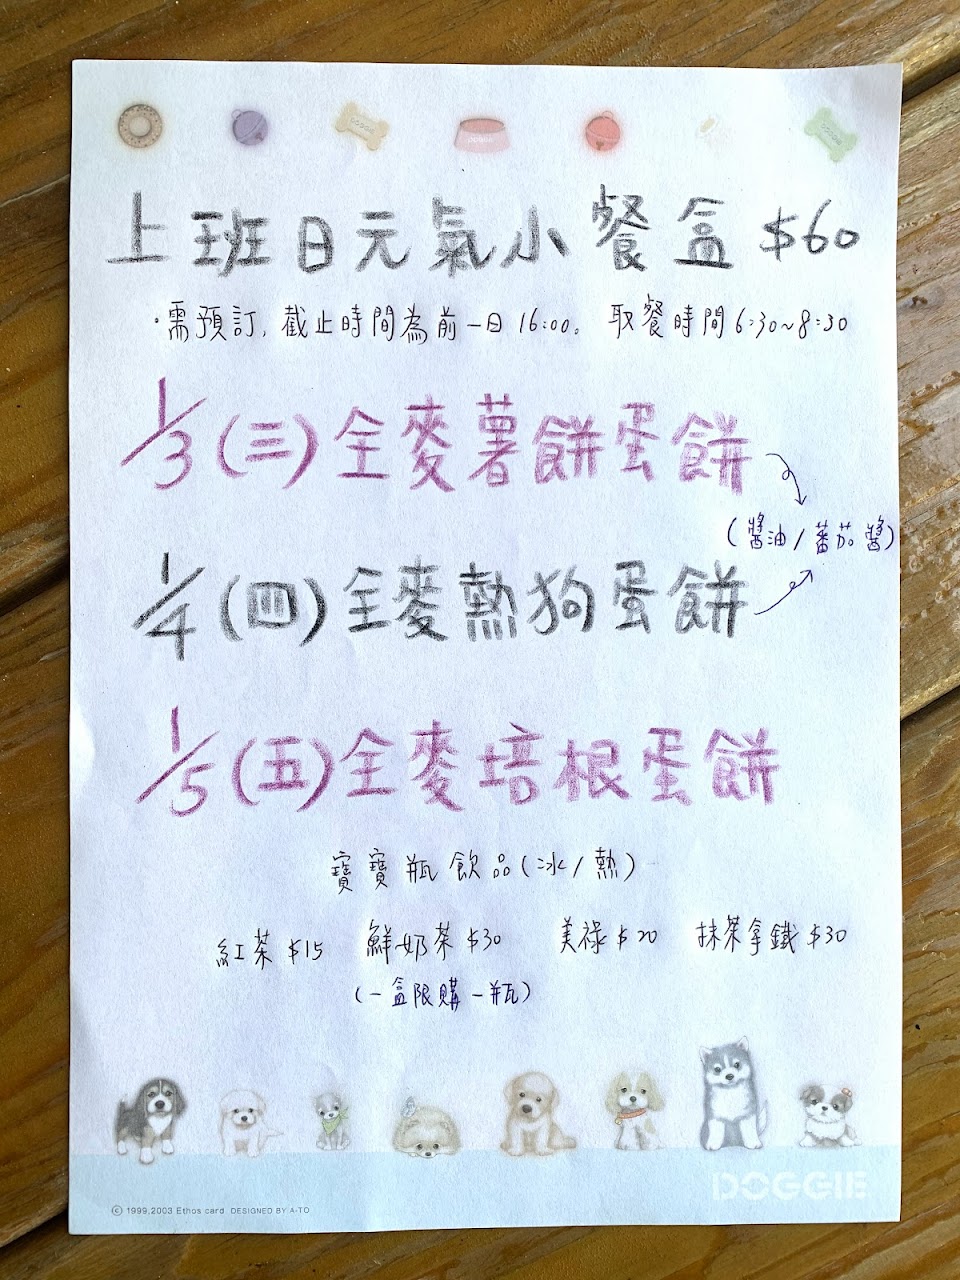 上班日元氣小餐盒 $60
·需預訂,截止時間為前一日16:00。 取餐時間6:30~8:30
1/3(三)全麥薯餅蛋餅
(醬油/蕃茄醬)
1/4(四)全麥熱狗蛋餅
1/5(五)全麥培根蛋餅
寶寶瓶飲品(冰/熱)
紅茶$15 鮮奶茶$30 美祿$20 抹茶拿鐵$30
(一盒限購一瓶)
DOGGIE
© 1999,2003 Ethos card DESIGNED BY A-TO